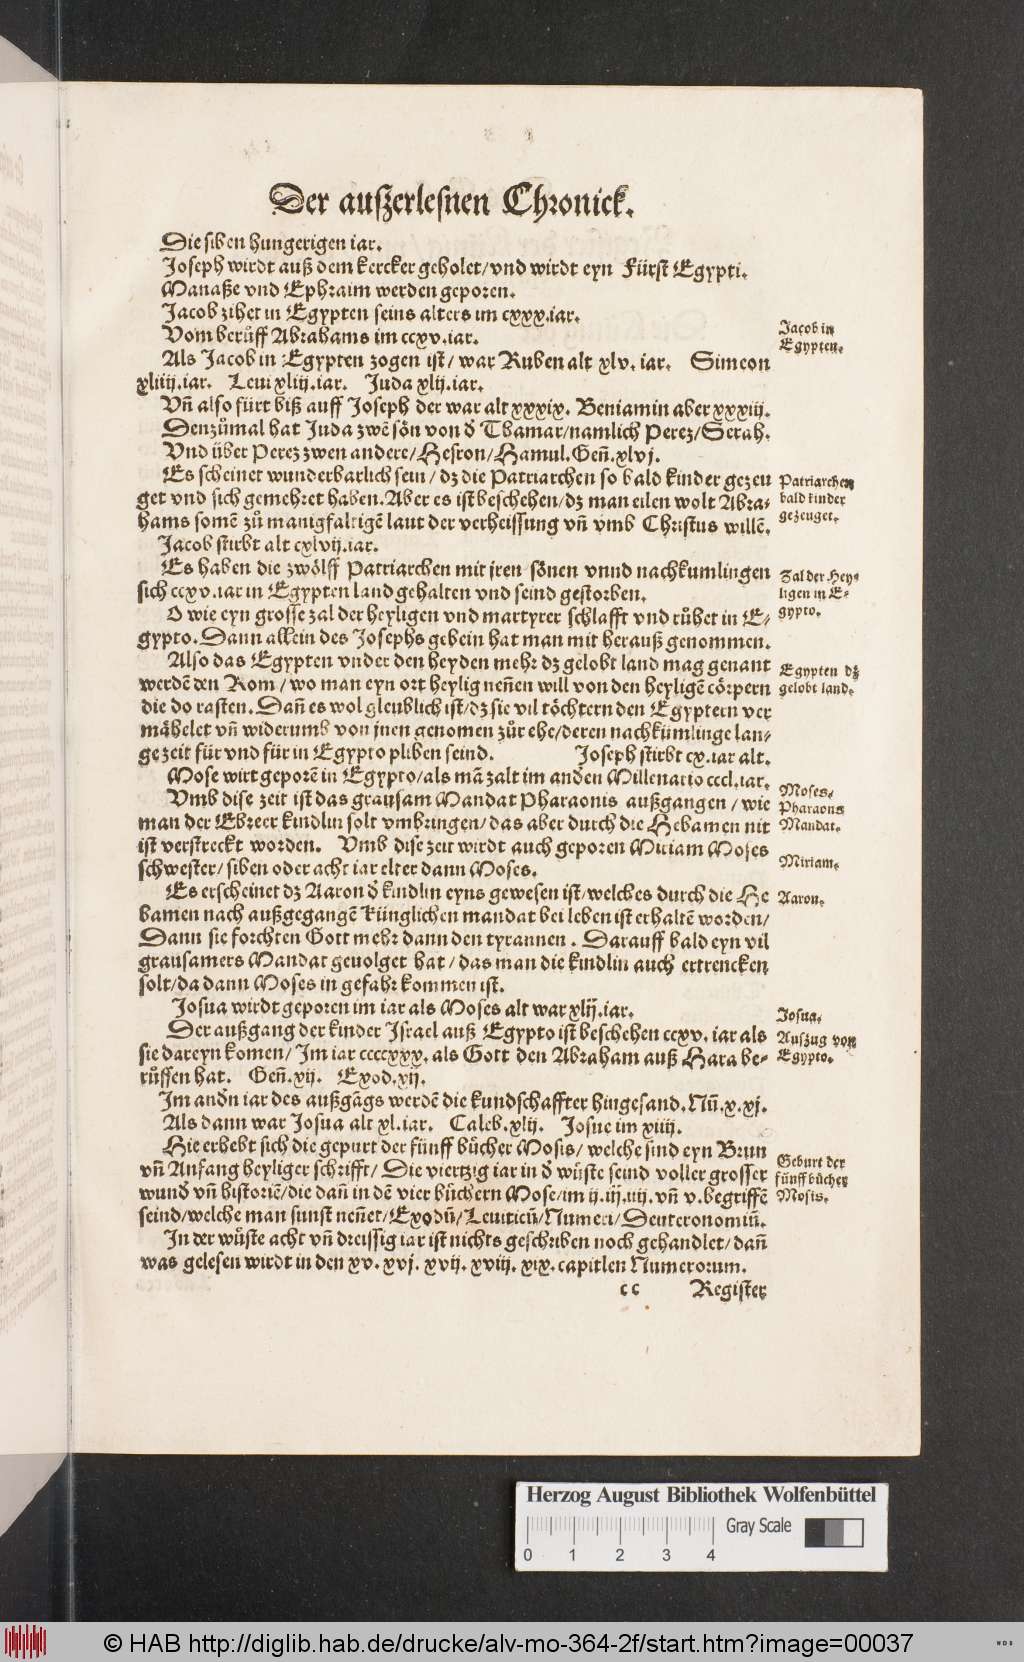 Der auſzerleſnen Chronick.
Die ſiben hungerigen iar.
Joſeph wirdt auß dem kercker geholet/vnd wirdt eyn Fürſt Egypti.
Manaße vnd Ephraim werden geporen.
Jacob zihet in Egypten ſeins alters im cxxx.iar.
Vom berůff Abrahams im ccxv.iar.
Jacob in
Egypten.
Als Jacob in Egypten zogen iſt/ war Ruben alt xlv. iar. Simeon
xliiij.iar. Leui xliij.iar. Juda xlij.iar.
Vñ alſo fürt biß auff Joſeph der war alt xxxix. Beniamin aber xxxiij.
Denzůmal hat Juda zwē ſön von d̕ Thamar/namlich Perez/Serah.
Vnd über Perez zwen andere/Heſron/Hamul.Geñ.xlvj.
Es ſcheinet wunderbarlich ſein/ dz die Patriarchen ſo bald kinder gezeu
get vnd ſich gemehret haben.Aber es iſt beſchehen/dz man eilen wolt Abra-
hams ſomē zů manigfaltigē laut der verheiſſung vñ vmb Chriſtus willē.
Patriarchen
bald kinder
gezeuget.
Jacob ſtirbt alt cxlvij.iar.
Es haben die zwölff Patriarchen mit jren ſönen vnnd nachkumlingen
ſich ccxv.iar in Egypten land gehalten vnd ſeind geſtorben.
O wie eyn groſſe zal der heyligen vnd martyrer ſchlafft vnd růhet in E-
gypto.Dann allein des Joſephs gebein hat man mit herauß genommen.
Zal der Hey-
ligen in E-
gypto.
Alſo das Egypten vnder den heyden mehr dz gelobt land mag genant
werdē den Rom/ wo man eyn ort heylig neñen will von den heyligē cörpern
die do raſten.Dañ es wol gleublich iſt/dz ſie vil töchtern den Egyptern ver
mähelet vñ widerumb von jnen genomen zůr ehe/deren nachkümlinge lan-
ge zeit für vnd für in Egypto pliben ſeind. Joſeph ſtirbt cx.iar alt.
Egypten dz
gelobt land.
Moſe wirt geporē in Egypto/als mā zalt im andēn Millenario cccl.iar.
Vmb diſe zeit iſt das grauſam Mandat Pharaonis außgangen/ wie
man der Ebreer kindlin ſolt vmbringen/das aber durch die Hebamen nit
iſt verſtreckt worden. Vmb diſe zeit wirdt auch geporen Miriam Moſes
ſchweſter/ſiben oder acht iar elter dann Moſes.
Moſes.
Pharaons
Mandat.
Miriam.
Es erſcheinet dz Aaron d̕ kindlin eyns geweſen iſt/welches durch die He
bamen nach außgegangē künglichen mandat bei leben iſt erhaltē worden/
Dann ſie forchten Gott mehr dann den tyrannen. Darauff bald eyn vil
grauſamers Mandat geuolget hat/das man die kindlin auch ertrencken
ſolt/da dann Moſes in gefahr kommen iſt.
Aaron.
Joſua wirdt geporen im iar als Moſes alt war xlij.iar.
Joſua.
Der außgang der kinder Iſrael auß Egypto iſt beſchehen ccxv. iar als
ſie dareyn komen/ Im iar ccccxxx. als Gott den Abraham auß Hara be-
růffen hat. Geñ.xij. Exod.xij.
Auſzug von
Egypto.
Im andn̄ iar des außgāgs werdē die kundſchaffter hingeſand.Nū.x.xj.
Als dann war Joſua alt xl.iar. Caleb.xlij. Joſue im xiiij.
Hie erhebt ſich die gepurt der fünff bůcher Moſis/ welche ſind eyn Brun
vñ Anfang heyliger ſchrifft/ Die viertzig iar in d̕ wůſte ſeind voller groſſer
wund̕ vñ hiſtoriē/die dañ in dē vier bůchern Moſe/im ij.iij.iiij.vñ v.begriffē
ſeind/welche man ſunſt neñet/Exodū/Leuiticū/Numeri/Deuteronomiū.
Geburt der
fünff bůcher
Moſis.
In der wůſte acht vñ dreiſſig iar iſt nichts geſchriben noch gehandlet/dañ
was geleſen wirdt in den xv. xvj. xvij. xviij. xix.capitlen Numerorum.
cc Regiſter
Herzog August Bibliothek Wolfenbüttel
Gray Scale
0 1 2 3 4
© HAB http://diglib.hab.de/drucke/alv-mo-364-2f/start.htm?image=00037